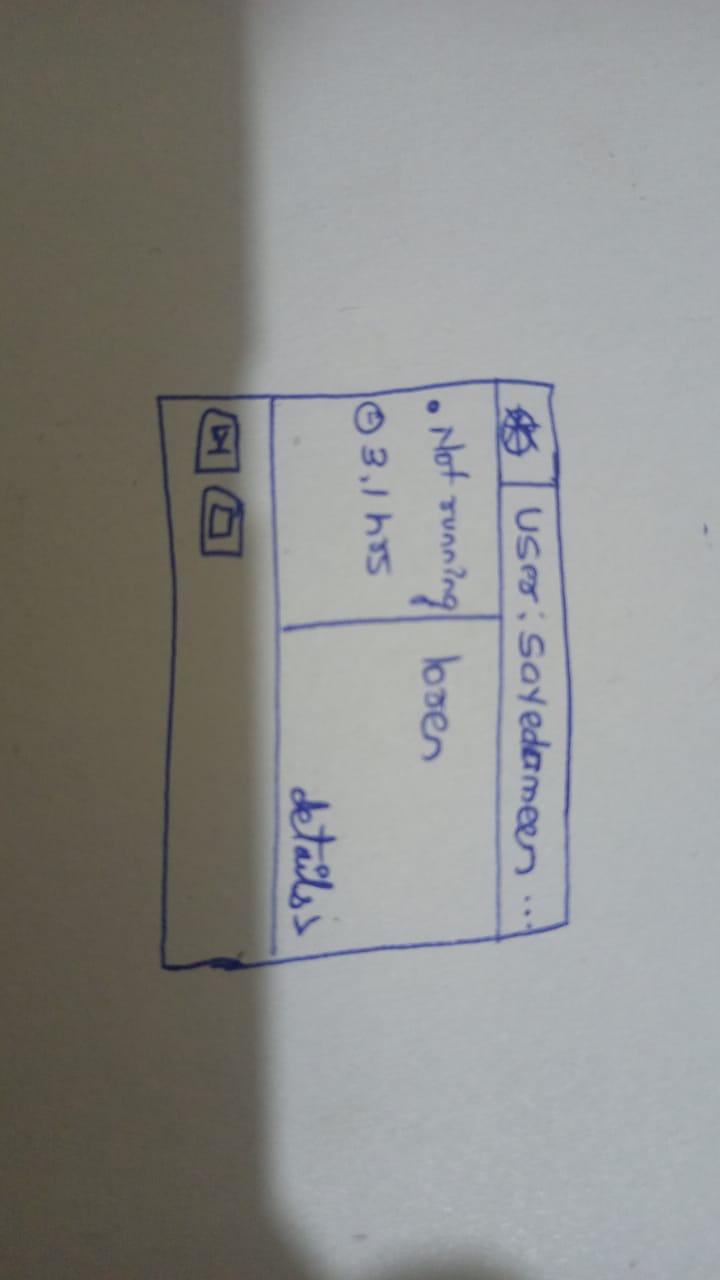 User: Sayedameen ...
• Not running
3.1 hrs
loren
details >